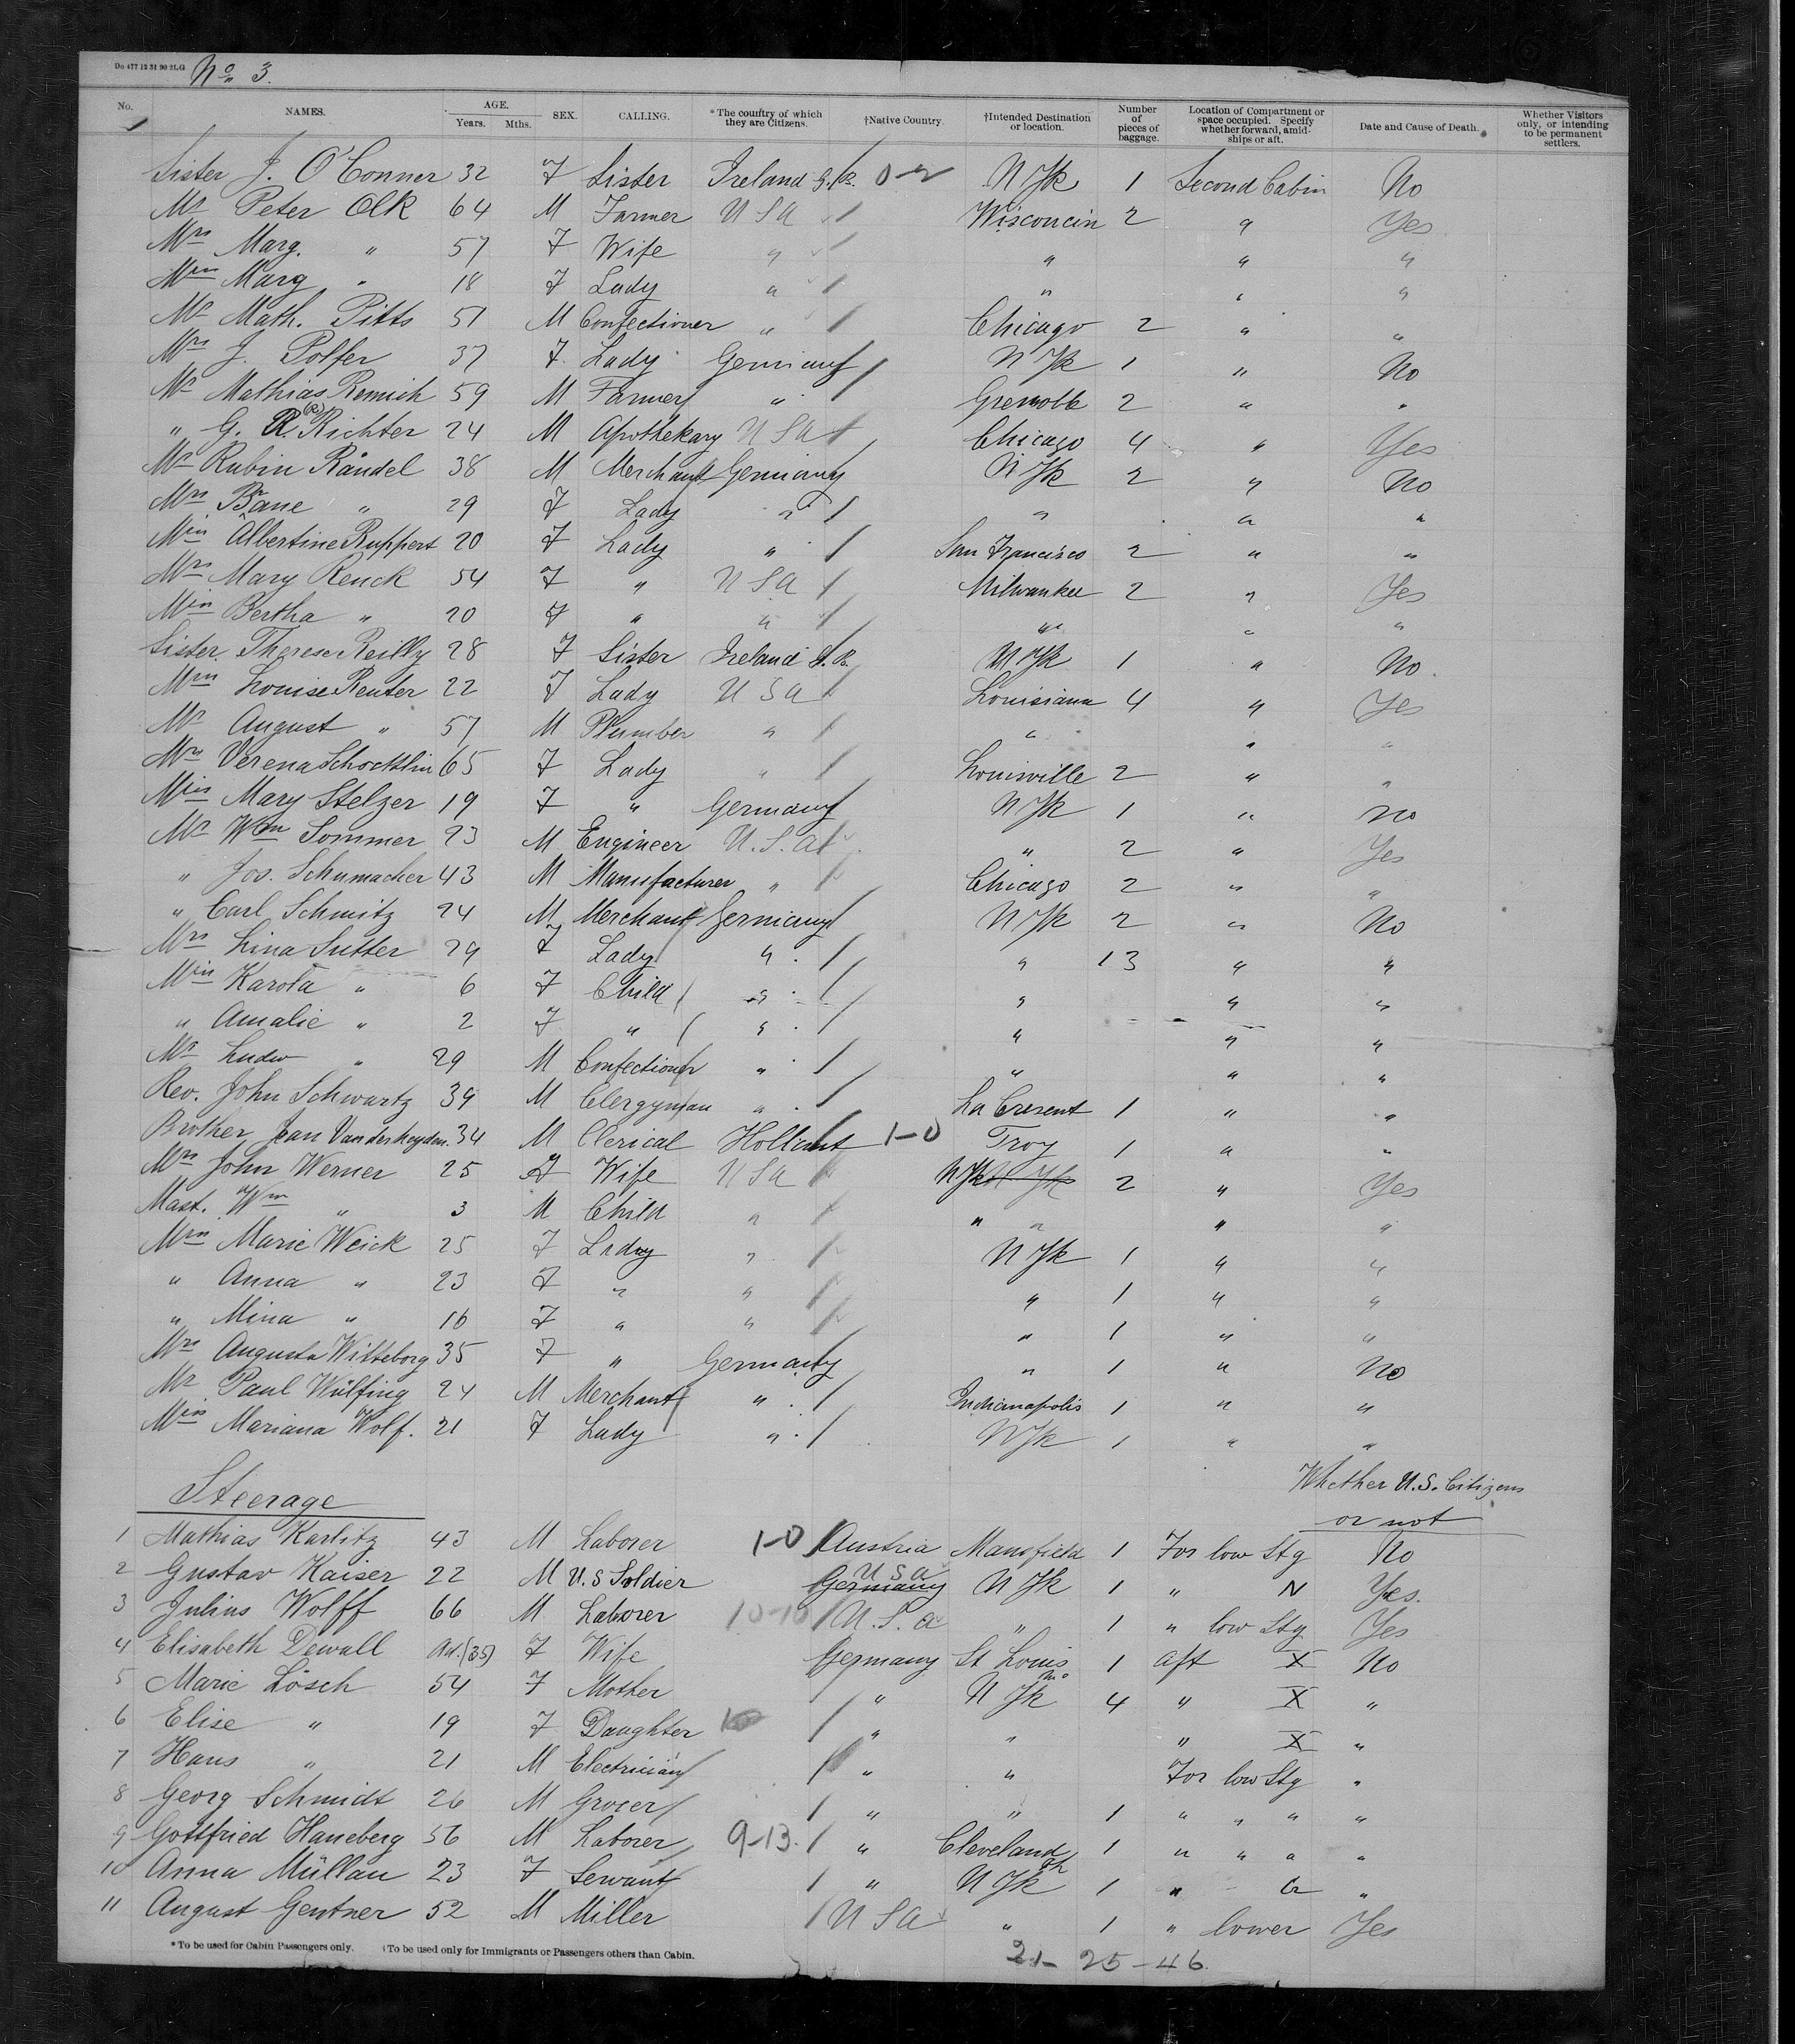 Do 477 12 31 90 2LG No 3.
No. NAMES. AGE. Years. Mths. SEX. CALLING. *The country of which they are Citizens. †Native Country. †Intended Destination or location. Number of pieces of baggage. Location of Compartment or space occupied. Specify whether forward, amidships or aft. Date and Cause of Death. Whether Visitors only, or intending to be permanent settlers.
Sister J. O'Conner 32 F Sister Ireland G. B. 0-2 N Yk 1 Second Cabin No
Mr Peter Olk 64 M Farmer U S A Wisconcin 2 " Yes
Mrs Marg. " 57 F Wife " " " "
Miss Marg " 18 F Lady " " " "
Mr Math. Pitts 51 M Confectioner " Chicago 2 " "
Mrs J. Polfer 37 F. Lady Germany N Yk 1 " No
Mr Mathias Remich 59 M Farmer " Grenoble 2 " "
" G. R. (R) Richter 24 M Apothekary U S A Chicago 4 " Yes
Mr Rubin Randel 38 M Merchant Germany N Yk 2 " No
Mrs Bane " 29 F Lady " " " "
Miss Albertine Ruppert 20 F Lady " San Francisco 2 " "
Mrs Mary Renck 54 F " U S A Milwaukee 2 " Yes
Miss Bertha " 20 F " " " " "
Sister Therese Reilly 28 F Sister Ireland G. B. N Yk 1 " No.
Miss Louise Reuter 22 F Lady U S A Louisiana 4 " Yes
Mr August " 57 M Plumber " " " "
Mrs Verena Schocklin 65 F Lady " Louisville 2 " "
Miss Mary Stelzer 19 F " Germany N Yk 1 " No
Mr Wm Sommer 23 M Engineer U. S. A " 2 " Yes
" Jos. Schumacher 43 M Manufacturer " Chicago 2 " "
" Carl Schmitz 24 M Merchant Germany N Yk 2 " No
Mrs Lina Sutter 29 F Lady " " 13 " "
Miss Karola " 6 F Child " " " "
" Amalie " 2 F " " " " "
Mr Ludw " 29 M Confectioner " " " "
Rev. John Schwartz 39 M Clergyman " La Cresent 1 " "
Brother Jean Vanderheyden. 34 M Clerical Hollant 1-0 Troy 1 " "
Mrs John Werner 25 F Wife U S A N Yk N Yk 2 " Yes
Mast. Wm " 3 M Child " " " " "
Miss Marie Weick 25 F Lady " N Yk 1 " "
" Anna " 23 F " " " 1 " "
" Mina " 16 F " " " 1 " "
Mrs Augusta Witteborg 35 F " Germany " 1 " No
Mr Paul Wülfing 24 M Merchant " Indianapolis 1 " "
Miss Mariana Wolf. 21 F Lady " N Yk 1 " "
Steerage Whether U.S. Citizens
or not
1 Mathias Karlitz 43 M Laborer 1-0 Austria Mansfield 1 For low Stg No
2 Gustav Kaiser 22 M U.S Soldier Germany U S A N Yk 1 " N Yes.
3 Julius Wolff 66 M Laborer 10-10 U. S. A " 1 " low Stg Yes
4 Elisabeth Dewall Ad. (35) F Wife Germany St Louis Mo 1 Aft X No
5 Marie Lösch 54 F Mother " N Yk 4 " X "
6 Elise " 19 F Daughter " " " X "
7 Hans " 21 M Electrician " " For low Stg "
8 Georg Schmidt 26 M Grocer " " 1 " " " "
9 Gottfried Haneberg 56 M Laborer 9-13. " Cleveland 1 " " " "
10 Anna Müllau 23 F Servant " N Yk 1 " "
11 August Gentner 52 M Miller U S A " 1 " lower Yes
* To be used for Cabin Passengers only. †To be used only for Immigrants or Passengers others than Cabin.
21 - 25 - 46.